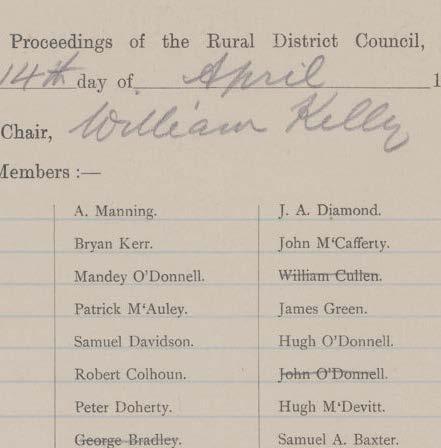 Proceedings of the Rural District Council,
14th day of April 1
Chair, William Kelly
Members :—
A. Manning. J. A. Diamond.
Bryan Kerr. John M‘Cafferty.
Mandey O'Donnell. William Cullen.
Patrick M‘Auley. James Green.
Samuel Davidson. Hugh O'Donnell.
Robert Colhoun. John O'Donnell.
Peter Doherty. Hugh M‘Devitt.
George Bradley. Samuel A. Baxter.